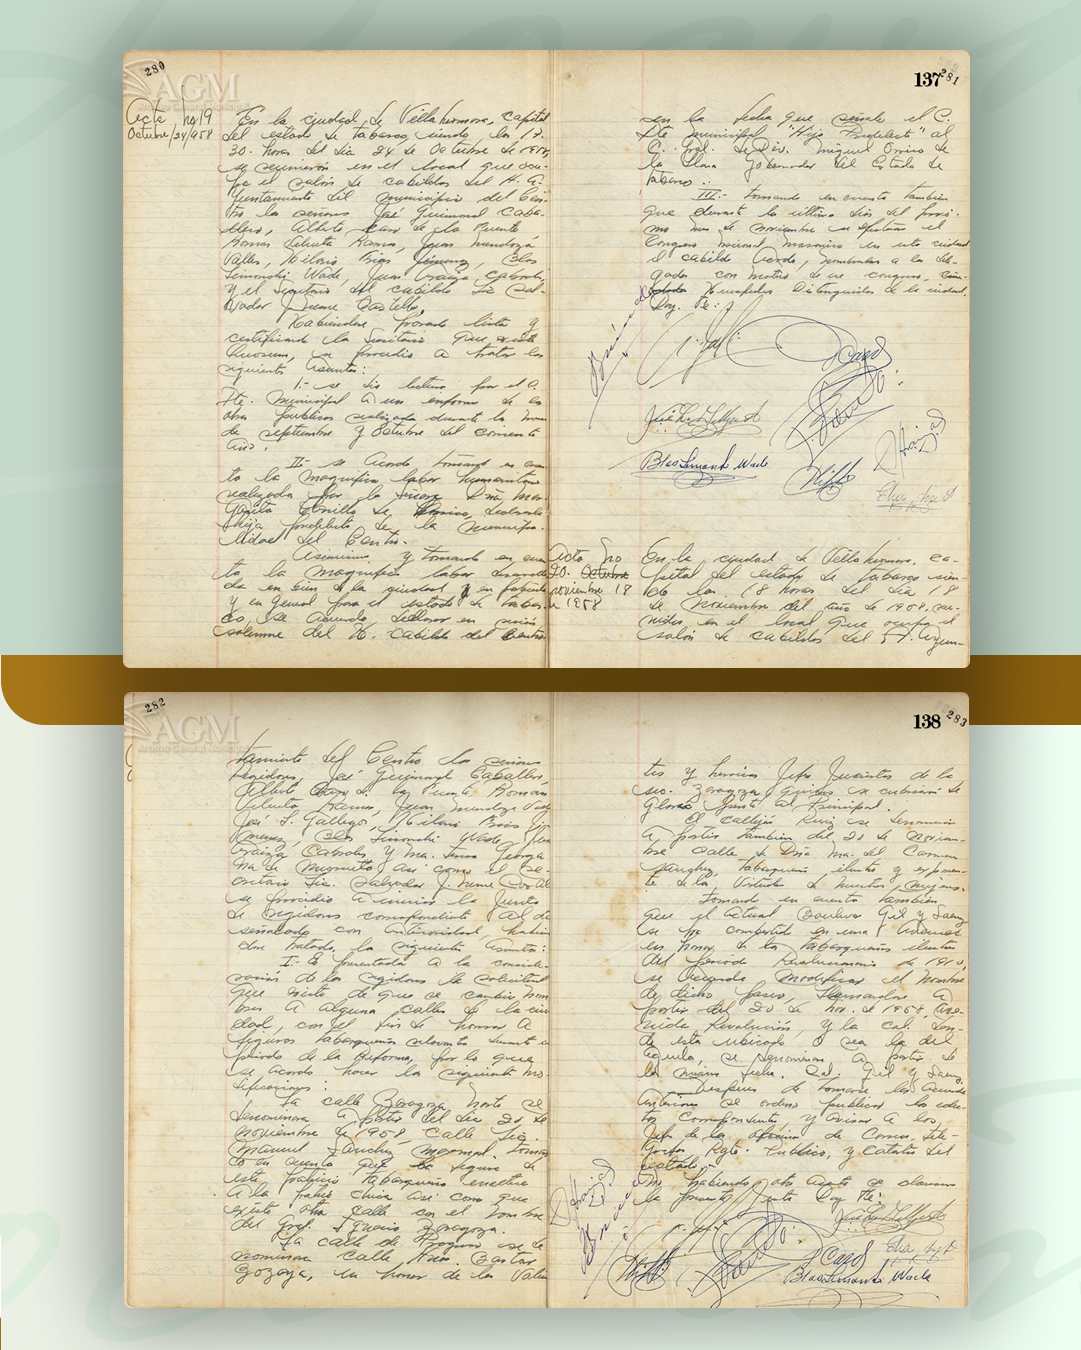 280
AGM
Archivo General Municipal
Acta No 19
Octubre/24/958
En la ciudad de Villahermosa, capital
del estado de tabasco, siendo las 17.
30 horas del dia 24 de Octubre de 1958,
se reunieron en el local que ocu-
pa el salón de cabildos del H. A-
yuntamiento del municipio del Cen-
tro los señores José Guimond Caba-
llero, Alberto de la Puente
Roman Ramos, Juan Mendoza
Valles, Hilario Rios Jimenez, Blas
Simonski Wade, Juan Uraiza Cabrales
y el secretario del cabildo Lic Sal-
vador J Neme Castillo,
Habiendose pasado lista y
certificando la Secretaria que existe
Quorum, se procedio a tratar los
siguientes asuntos:
I.- se dio lectura por el C.
Pte. Municipal a un informe de las
obras publicas realizadas durante los meses
de septiembre y Octubre del corriente
año.
II.- se Acordo tomando en cuen-
ta la magnifica labor humanitaria
realizada por la Señora Dña Mar-
garita de declararla
Hija predilecta de la Municipa-
lidad del Centro.
Asimismo y tomando en cuen-
ta la magnifica labor desarrolla-
da en bien de la ciudad y en
y en general para el estado de Tabas-
co, se Acuerda declarar en sesión
solemne del H. Cabildo del Centro
137
281
en la fecha que señale el C.
Pte municipal "Hijo Predilecto" al
C. Gral. de Div. Miguel Orrico de
los Llanos Gobernador del Estado de
Tabasco.
III.- tomando en cuenta tambien
que durante los últimos dias del proxi-
mo mes de noviembre se efectuara el
Congreso nacional masonico en esta ciudad
el cabildo acordo, nombrar a los dele-
gados con motivo de ese congreso
Huespedes Distinguidos de la ciudad.
Doy Fe:
Blas Simonski Wade
Acta No
20. Octubre
noviembre 18
de 1958
En la ciudad de Villahermosa, ca-
pital del estado de tabasco sien-
do las 18 horas del dia 18
de Noviembre del año de 1958, reu-
nidos en el local que ocupa el
salón de cabildos del H. Ayun-
282
AGM
Archivo General Municipal
tamiento del Centro los señores
Regidores, José Guimond Caballero,
Alberto de la Puente, Roman
Ramos, Juan Mendoza Valles
José T. Gallegos, Hilario Rios Ji-
menez, Blas Simonski Wade, Juan
Uraiza Cabrales y Ma.
asi como el Se-
cretario Lic. Salvador J. Neme Castillo
se procedio a iniciar la Junta
de regidores correspondiente al dia
señalado con anterioridad, habien-
dose tratado los siguientes asuntos:
I.- Es presentada a la conside-
ración de los regidores la solicitud
que existe de que se cambie nom-
bres a algunas calles de la ciu-
dad, con el fin de honrar a
figuras tabasqueñas relevantes durante el
periodo de la Reforma, por lo que
se acordo hacer las siguientes mo-
dificaciones:
La calle Zaragoza Norte se
denominara a partir del dia 20 de
noviembre de 1958, calle Lic.
Manuel Sanchez Marmol. toman-
do en cuenta que la figura de
este patricio tabasqueño enaltece
a la patria chica asi como que
existe otra calle con el nombre
del Gral. Ignacio Zaragoza.
La calle de Progreso se de-
nominara calle Bastar
Zozaya, en honor de los valien-
138
283
tes y heroicos Jefes Juaristas de la
sec. Zaragoza quienes se cubrieron de
gloria frente al Principal.
El callejón Ruiz se denominara
a partir tambien del 20 de noviem-
bre calle de Dña Ma. del Carmen
Sanchez, tabasqueña ilustre y exponen-
te de las virtudes de nuestras mujeres.
Tomando en cuenta tambien
que el actual Boulevar Gil y Saenz
se ha convertido en una Avenida
en honor de los tabasqueños ilustres
del periodo Revolucionario de 1910,
se Acuerda modificar el Nombre
de dicho paseo, llamandose a
partir del 20 de Nov. de 1958, Ave-
nida Revolución, y la cal. don-
de esta ubicado o sea la del
Aguila, se denominara a partir de
la misma fecha. Cal. Gil y Saenz.
Despues de tomarse los acuerdos
anteriores se ordeno publicar los edic-
tos correspondientes, y avisar a los
Jefes de las oficinas de Correos, tele-
grafos Regto. Publico, y Catastro del
estado.
No habiendo otro asunto se clausura
la presente Junta Doy Fe:
Blas Simonski Wade